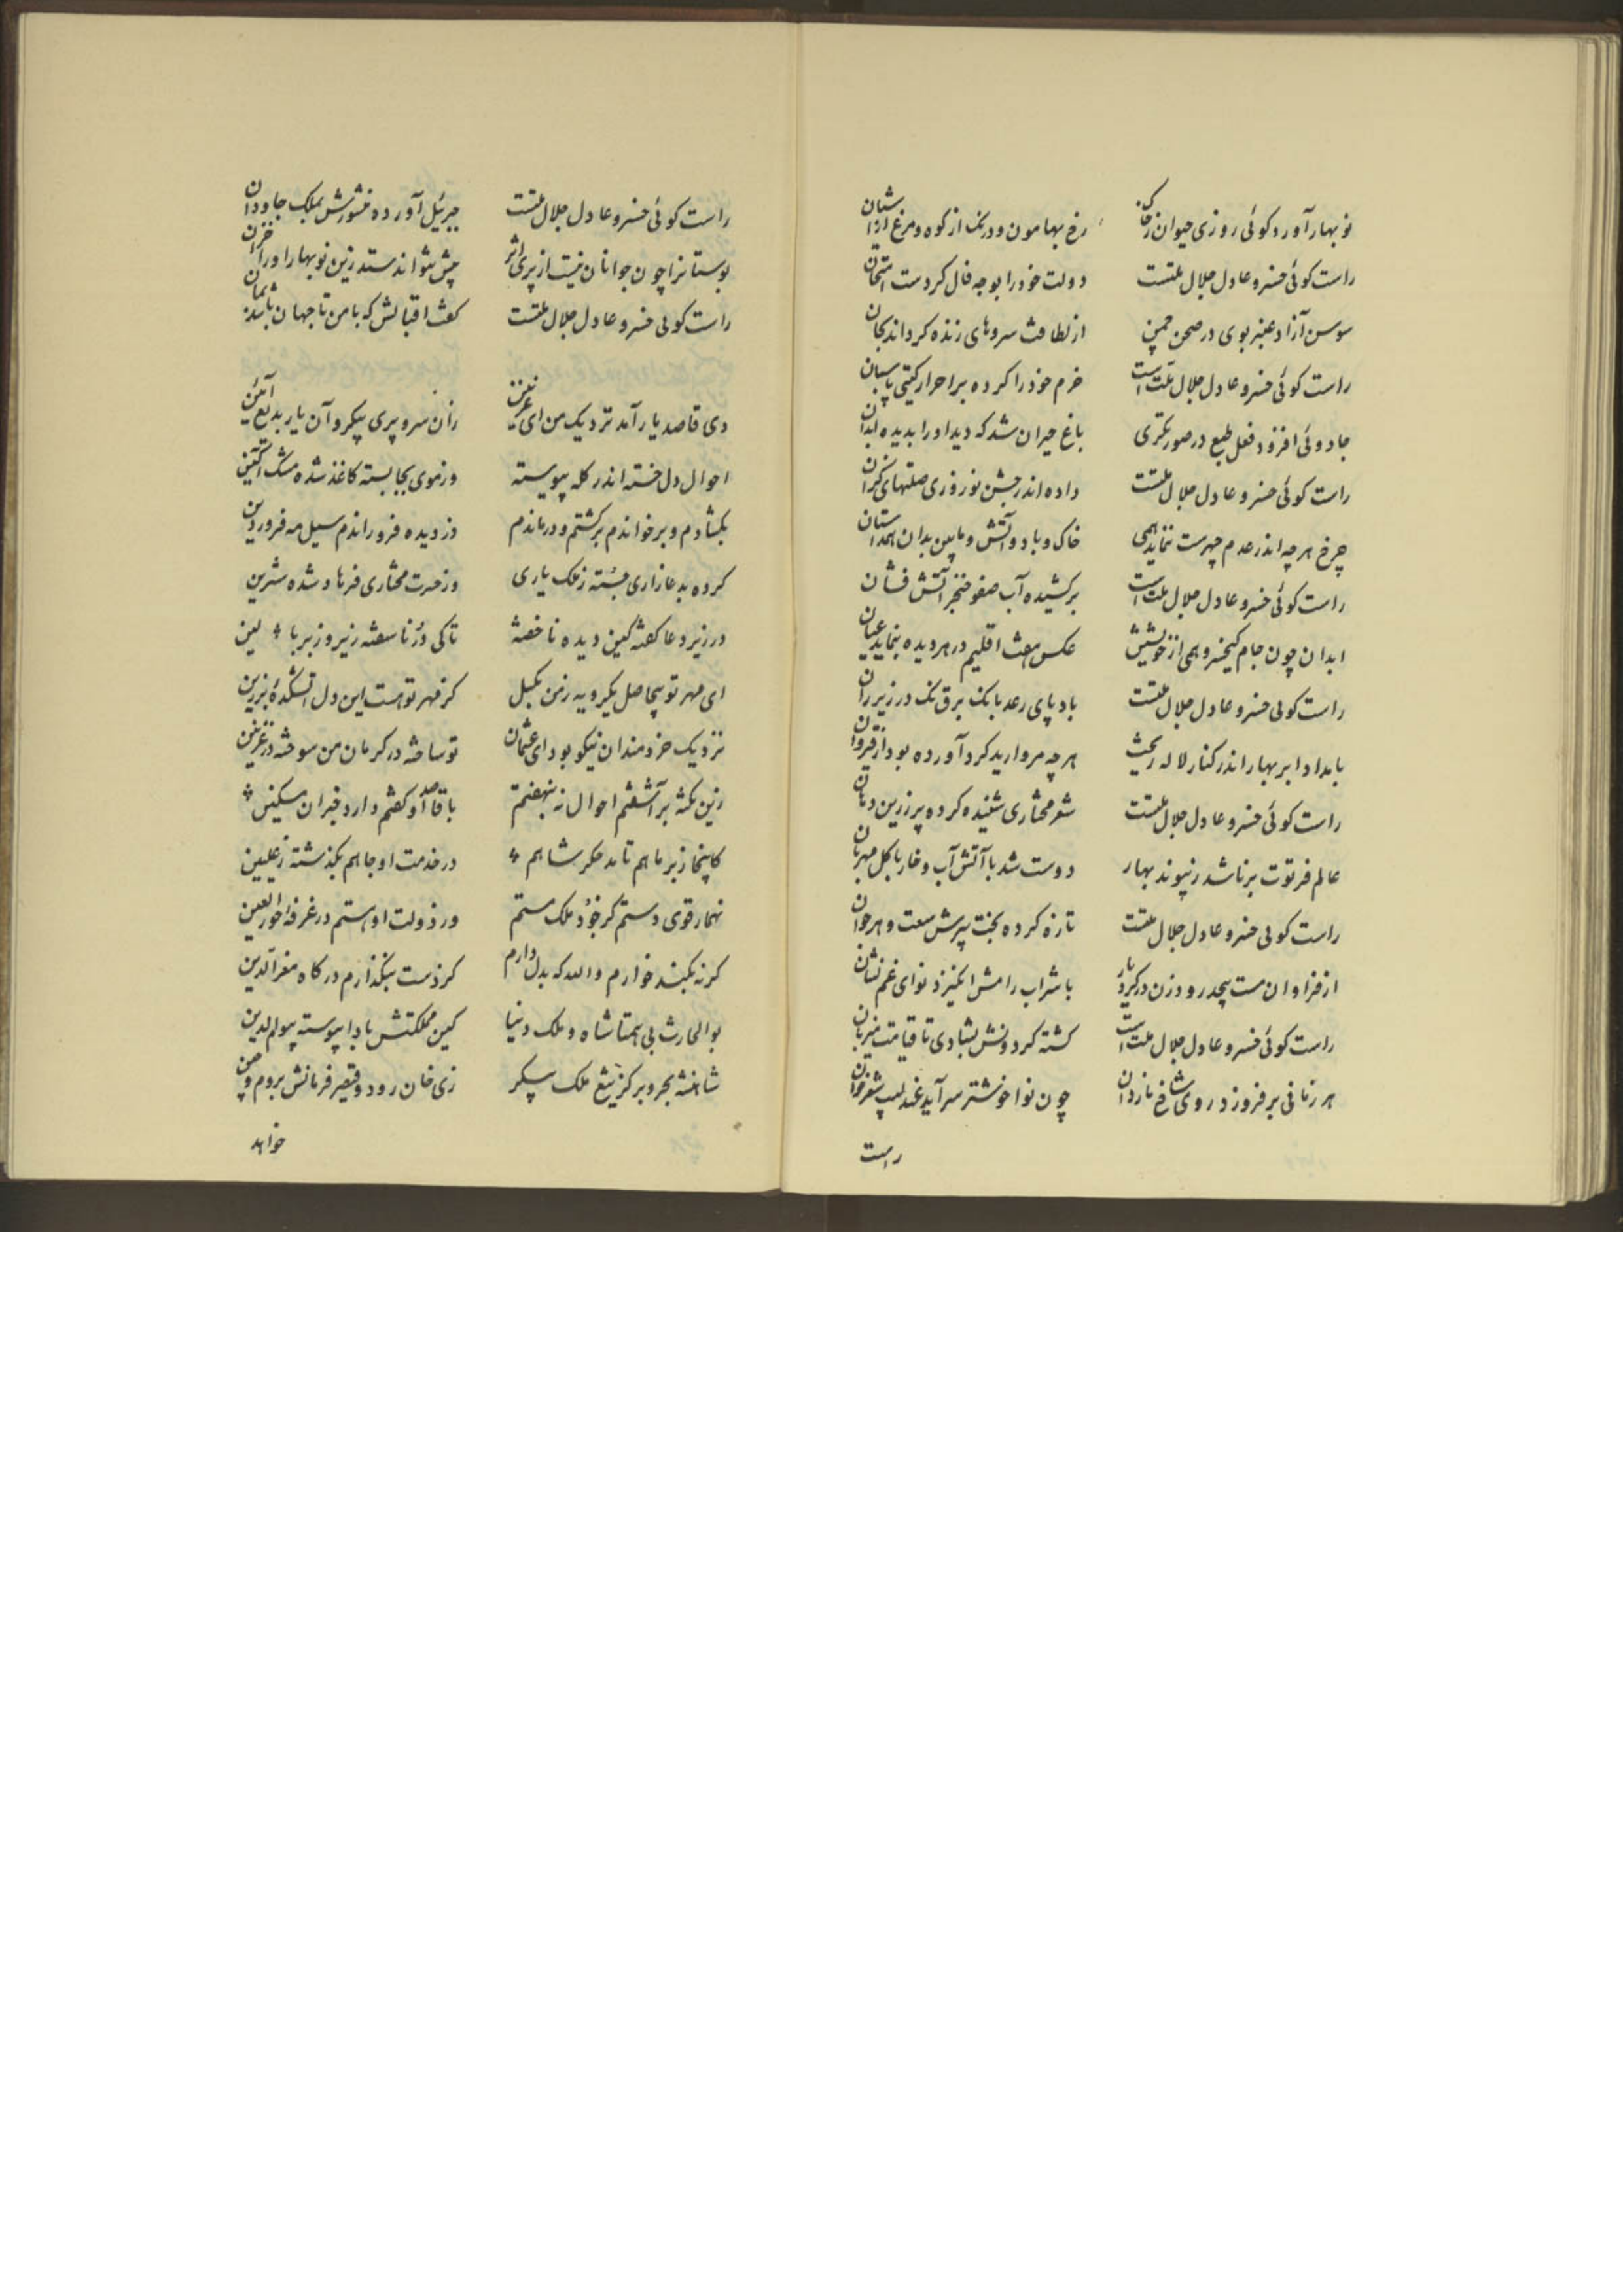 نوبهار آورد کوئی روزی حیوان ز خاک رخ بهامون و درنک از کوه و مرغ از اشیان
راست کوئی خسرو عادل جلال ملتست دولت خود را بوجه فال کردست امتحان
سوسن آزاد عنبر بوی در صحن چمن از لطافت سروهای زنده کرد اندیجان
راست کوئی خسرو عادل جلال ملت است خرم خود را کرده بر احرار کیتی پاسبان
جادوئی افزود فعل طبع در صورتکری باغ حیران شد که دید او را بدیده
راست کوئی خسرو عادل جلال ملتست داده اندر جشن نوروزی صلتهای کران
چرخ هرچه اندر عدم چهرست ننماید همی خاک و باد و آتش و مابین بدان
راست کوئی خسرو عادل جلال ملت است برکشیده آب صفو خنجر آتش فشان
ابدان چون جام کیخسرو همی از خویشتن عکس هفت اقلیم در هر دیده بنماید عیان
راست کوئی خسرو عادل جلال ملتست باد پای رعد بانک برق تک در زیر ران
بامداد ابر بهار اندر کنار لاله ریخت هرچه مروارید کرد آورده بود از قیروان
راست کوئی خسرو عادل جلال ملتست شعر مختاری شنیده کرده پر زرین دهان
عالم فرتوت برنا شد ز پیوند بهار دوست شد با آتش آب و خار با کل مهربان
راست کوئی خسرو عادل جلال ملتست تازه کرده بخت پیرش
از فراوان مست پیچد رود زن در کرد بار با شراب رامش انکیزد نوای غم نشان
راست کوئی خسرو عادل جلال ملت است کشته کردونش بشادی تا قیامت میزبان
هر زمانی برفروزد روی شاخ ناردان چون نوا خوشتر سرآید عندلیب شعرخوان
راست
راست کوئی خسرو عادل جلال ملتست جبرئیل آورده منشورش بملک جاودان
بوستانرا چون جوانان نیست از پیری اثر پیش نتواند ستد زین نوبهار او را خزان
راست کوئی خسرو عادل جلال ملتست کفت اقبالش که با من تا جهان باشد بمان
دی قاصد یار آمد نزدیک من ای غزنین زان سرو پری پیکر و آن یار بدیع آئین
احوال دل خسته اندر کله پیوسته وز موی بجا بسته کاغذ شده مشک آکین
بکشادم و برخواندم برکشتم و درماندم وز دیده فرو راندم سیل مه فروردین
کرده بدعا زاری جسته ز ملک یاری وز حسرت مختاری فرهاد شده شیرین
در زیر دعا کفته کین دیده ناخفته تا کی در ناسفته زیر و زبر بالین
ای مهر تو بیحاصل یکرویه ز من بکسل کز مهر تو هست این دل آتشکدهٔ برزین
نزدیک خردمندان نیکو بود ای عثمان تو ساخته در کرمان من سوخته در غزنین
زین نکته برآشفتم احوال نه بنهفتم با قاصد او کفتم دارد خبر آن مسکین
کاینجا ز بر ماهم تا مدحکر شاهم در خدمت او جاهم بکذشته ز علیین
نهمار قوی دستم کر خود ملک مستم ور دولت او هستم در غرفهٔ حور العین
کرنه بکمند خوارم والله که بدل دارم کز دست بنکذارم درکاه معز الدین
بوالحارث بی همتا شاه و ملک دنیا کین مملکتش بادا پیوسته بیوم الدین
شاهنشه بحر و بر کز تیغ ملک پیکر زی خان رود و قیصر فرمانش بروم و چین
خواهد